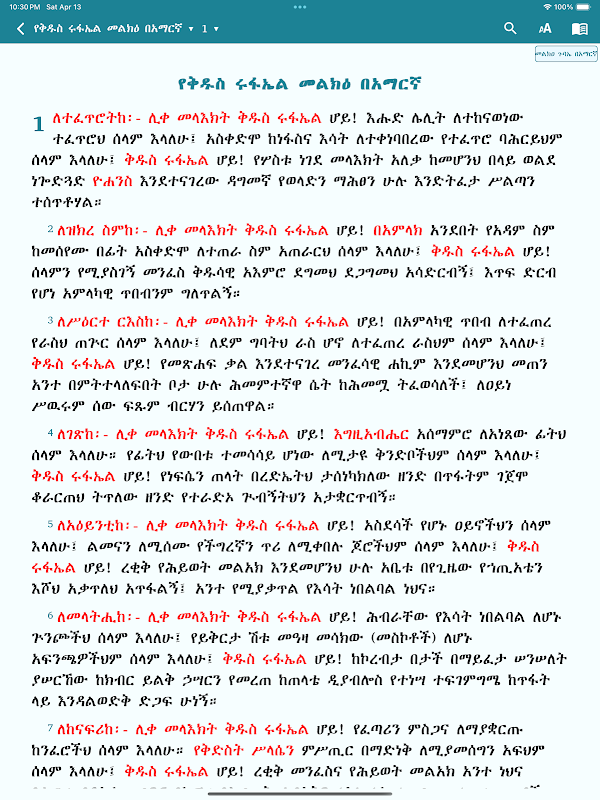 10:30 PM Sat Apr 13 100%
የቅዱስ ሩፋኤል መልክዕ በአማርኛ 1 AA
መልክዐ ጉባኤ በአማርኛ
የቅዱስ ሩፋኤል መልክዕ በአማርኛ
1 ለተፈጥሮትከ፡- ሊቀ መላእክት ቅዱስ ሩፋኤል ሆይ! እሑድ ሌሊት ለተከናወነው
ተፈጥሮህ ሰላም እላለሁ፤ አስቀድሞ ከነፋስና እሳት ለተቀነባበረው የተፈጥሮ ባሕርይህም
ሰላም እላለሁ፤ ቅዱስ ሩፋኤል ሆይ! የሦስቱ ነገደ መላእክት አለቃ ከመሆንህ በላይ ወልደ
ነጐድጓድ ዮሐንስ እንደተናገረው ዳግመኛ የወላድን ማሕፀን ሁሉ እንድትፈታ ሥልጣን
ተሰጥቶሃል።
2 ለዝክረ ስምከ፡- ሊቀ መላእክት ቅዱስ ሩፋኤል ሆይ! በአምላክ አንደበት የአዳም ስም
ከመሰየሙ በፊት አስቀድሞ ለተጠራ ስም አጠራርህ ሰላም እላለሁ፤ ቅዱስ ሩፋኤል ሆይ!
ሰላምን የሚያስገኝ መንፈስ ቅዱሳዊ አእምሮ ደግመህ ደጋግመህ አሳድርብኝ፤ እጥፍ ድርብ
የሆነ አምላካዊ ጥበብንም ግለጥልኝ።
3 ለሥዕርተ ርእስከ፡- ሊቀ መላእክት ቅዱስ ሩፋኤል ሆይ! በአምላካዊ ጥበብ ለተፈጠረ
የራስህ ጠጉር ሰላም እላለሁ፤ ለደም ግባትህ ራስ ሆኖ ለተፈጠረ ራስህም ሰላም እላለሁ፤
ቅዱስ ሩፋኤል ሆይ! የመጽሐፍ ቃል እንደተናገረ መንፈሳዊ ሐኪም እንደመሆንህ መጠን
አንተ በምትተላለፍበት ቦታ ሁሉ ሕመምተኛዋ ሴት ከሕመሟ ትፈወሳለች፤ ለዐይነ
ሥዉሩም ሰው ፍጹም ብርሃን ይሰጠዋል።
4 ለገጽከ፡- ሊቀ መላእክት ቅዱስ ሩፋኤል ሆይ! እግዚአብሔር አሰማምሮ ለአነጸው ፊትህ
ሰላም እላለሁ። የፊትህ የውበቱ ተመሳሳይ ሆነው ለሚታዩ ቅንድቦችህም ሰላም እላለሁ፤
ቅዱስ ሩፋኤል ሆይ! የነፍሴን ጠላት በረድኤትህ ታሰነካክለው ዘንድ በጥፋትም ገጀሞ
ቆራርጠህ ትጥለው ዘንድ የተራድኦ ጉብኝትህን አታቋርጥብኝ።
5 ለአዕይንቲከ፡- ሊቀ መላእክት ቅዱስ ሩፋኤል ሆይ! አስደሳች የሆኑ ዐይኖችህን ሰላም
እላለሁ፤ ልመናን ለሚሰሙ የችግረኛን ጥሪ ለሚቀበሉ ጆሮችህም ሰላም እላለሁ፤ ቅዱስ
ሩፋኤል ሆይ! ረቂቅ የሕይወት መልአክ እንደመሆንህ ሁሉ አቤቱ በየጊዜው የኀጢአቴን
እሾህ አቃጥለህ አጥፋልኝ፤ አንተ የሚያቃጥል የእሳት ነበልባል ነህና።
6 ለመላትሒከ፡- ሊቀ መላእክት ቅዱስ ሩፋኤል ሆይ! ሕብራቸው የእሳት ነበልባል ለሆኑ
ጉንጮችህ ሰላም እላለሁ፤ የይቅርታ ሽቱ መዓዛ መሳክው (መስኮቶች) ለሆኑ
አፍንጫዎችህም ሰላም እላለሁ፤ ቅዱስ ሩፋኤል ሆይ! ከኮረብታ በታች በማይፈታ ሠንሠለት
ያሠርኸው ከክብር ይልቅ ኃሣርን የመረጠ ከጠላቴ ዲያብሎስ የተነሣ ተፍገምግሜ ከጥፋት
ላይ እንዳልወድቅ ድጋፍ ሁነኝ።
7 ለከናፍሪከ፡- ሊቀ መላእክት ቅዱስ ሩፋኤል ሆይ! የፈጣሪን ምስጋና ለማያቋርጡ
ከንፈሮችህ ሰላም እላለሁ። የቅድስት ሥላሴን ምሥጢር በማድነቅ ለሚያመሰግን አፍህም
ሰላም እላለሁ፤ ቅዱስ ሩፋኤል ሆይ! ረቂቅ መንፈስና የሕይወት መልአክ አንተ ነህና